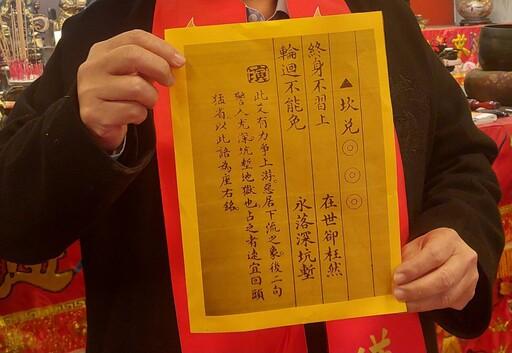 ▲坎兌◎◎◎
終身不習上 在世卻枉然
輪迴不能免 永落深坑塹
此文有力爭上游。惡居下流之象。後二句
警人尤深。坑塹地獄也。占之者速宜回頭
猛省。以此語為座右銘。